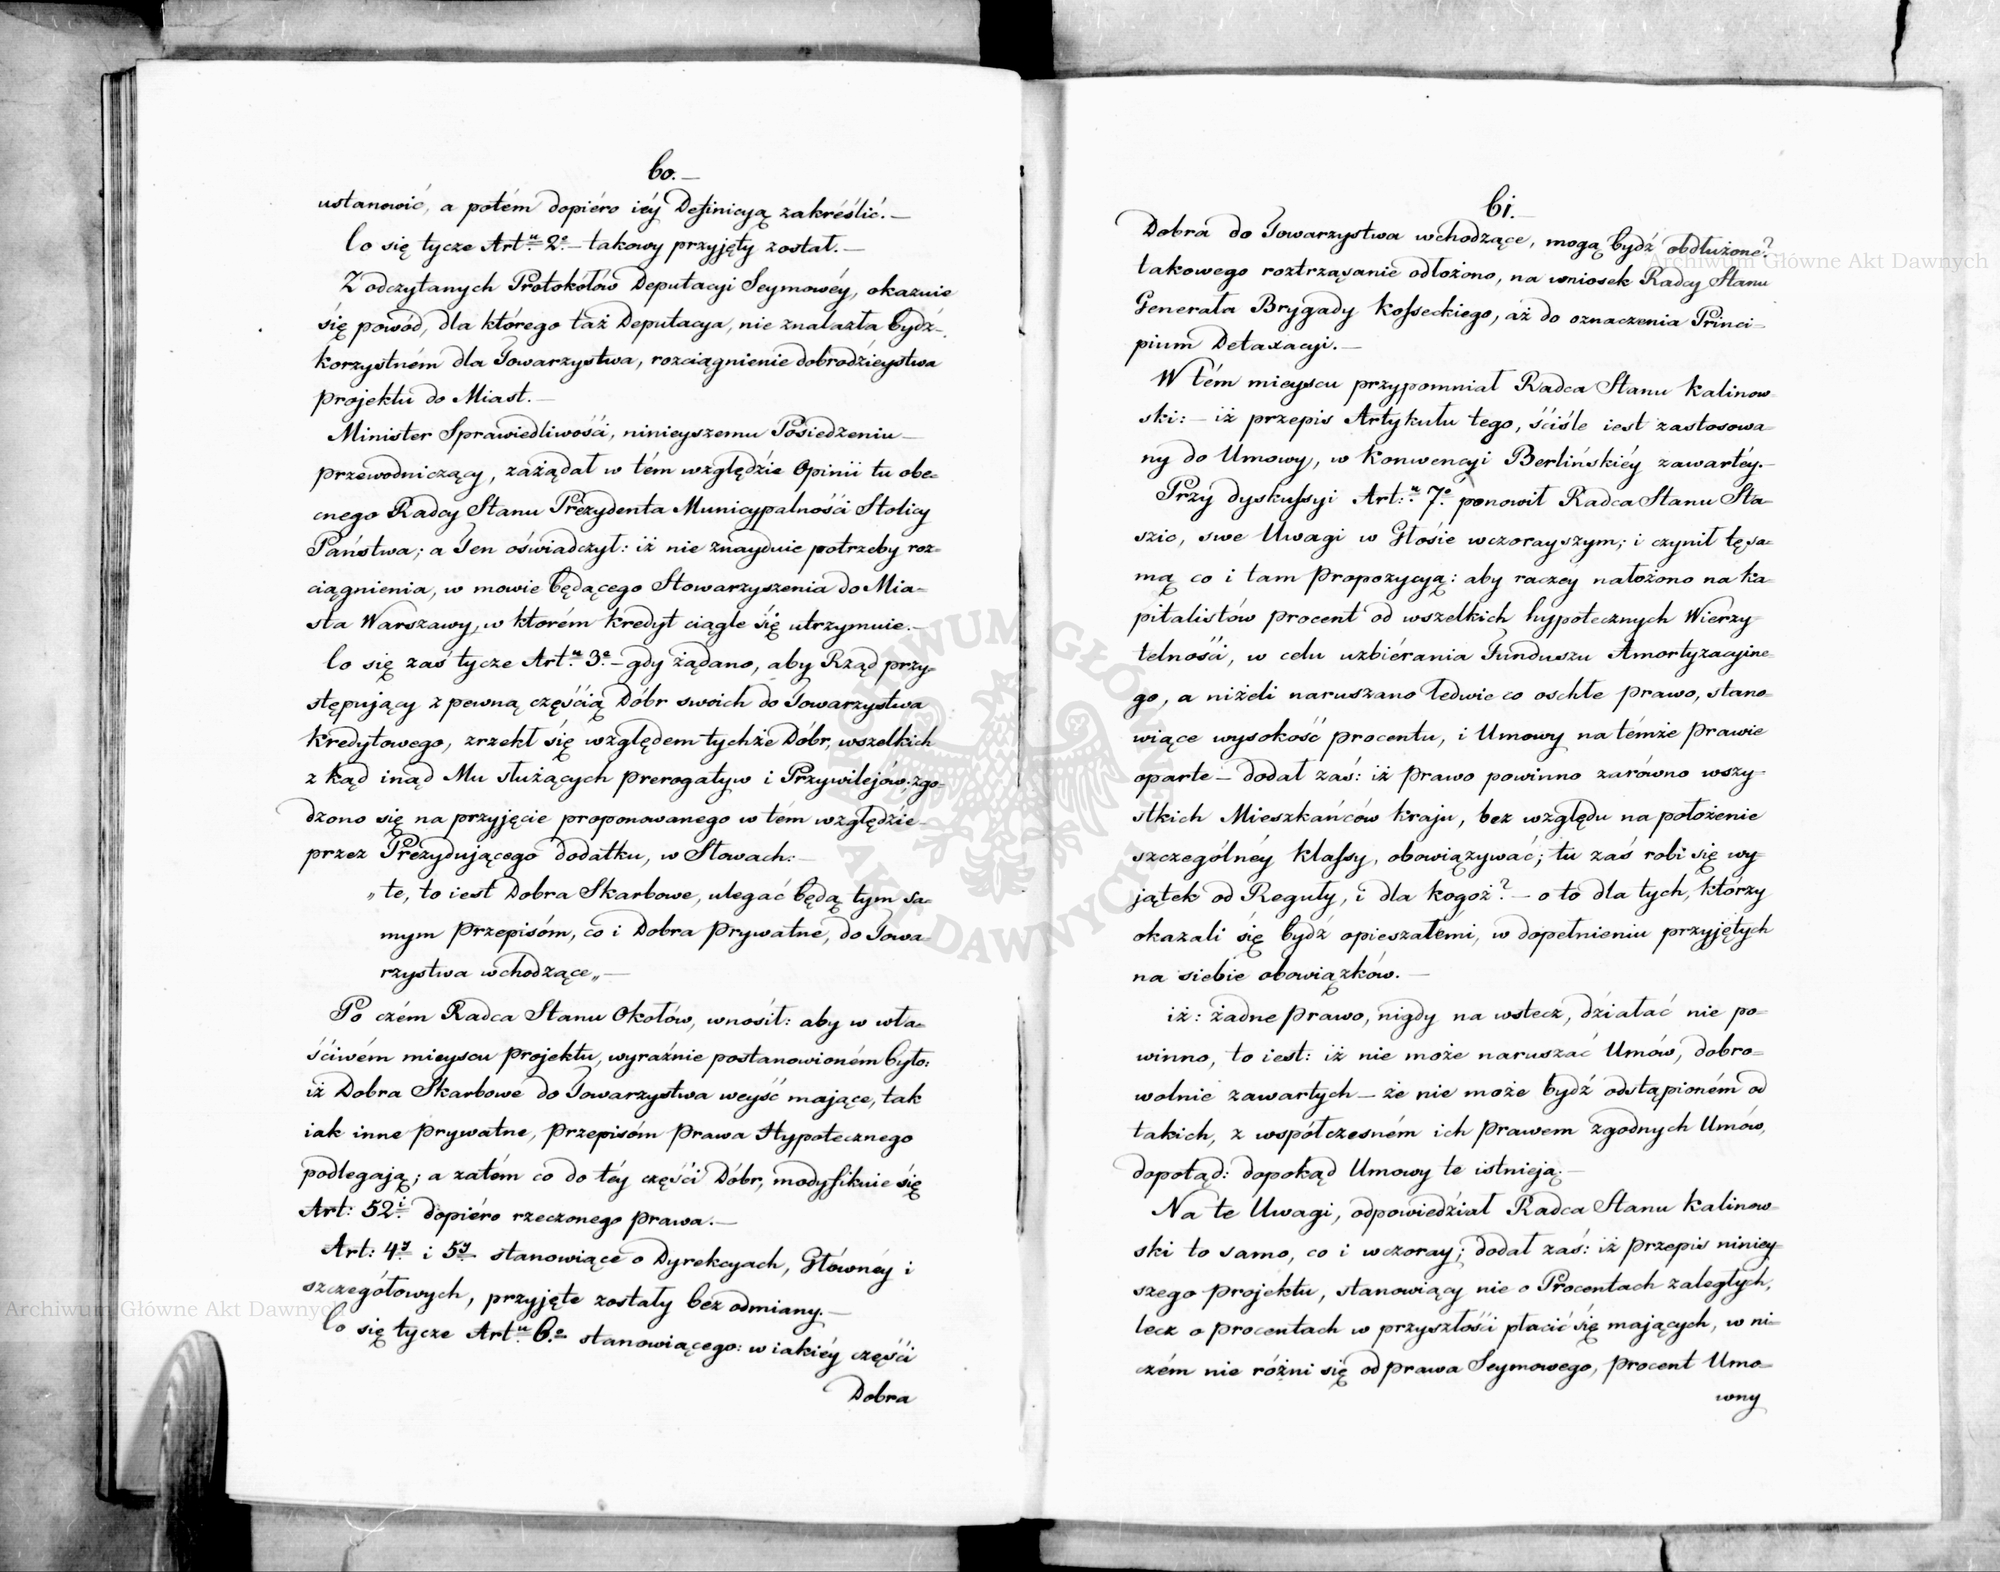 60.—
ustanowić, a potém dopiéro iéy Definicyą zakréślić.—
Co się tycze Art.u 2o.— takowy przyjęty został.—
Z odczytanych Protokółów Deputacyi Seymowéy, okazuie
się powód, dla którego taż Deputacya, nie znalazła bydź
korzystném dla Towarzystwa, rozciągnienie dobrodzieystwa
projektu do Miast.—
Minister Sprawiedliwości, ninieyszemu Posiedzeniu—
przewodniczący, zażądał w tém względzie Opinii tu obe=
cnego Radcy Stanu Prezydenta Municypalności Stolicy
Państwa; a Ten oświadczył: iż nie znayduie potrzeby roz=
ciągnienia, w mowie będącego Stowarzyszenia do Mia=
sta Warszawy, w którém kredyt ciągle się utrzymuie.—
Co się zaś tycze Art.u 3o.— gdy żądano, aby Rząd przy=
stępujący z pewną częścią Dóbr swoich do Towarzystwa
kredytowego, zrzekł się względem tychże Dóbr, wszelkich
z kąd inąd Mu służących prerogatyw i Przywilejów; zgo=
dzono się na przyjęcie proponowanego w tém względzie—
przez Prezydującego dodatku, w Słowach:—
„te, to iest Dobra Skarbowe, ulegać będą tym sa=
mym Przepisóm, co i Dobra Prywatne, do Towa=
rzystwa wchodzące„—
Po czém Radca Stanu Okołów, wnosił: aby w wła=
ściwém mieyscu projektu, wyraźnie postanowioném było:
iż Dobra Skarbowe do Towarzystwa weyść mające, tak
iak inne Prywatne, Przepisóm Prawa Hypotecznego
podlegają; a zatém co do téy części Dóbr, modyfikuie się
Art: 52i. dopiéro rzeczonego Prawa.—
Art: 4y i 5y stanowiące o Dyrekcyach, Główney i
szczegółowych, przyjęte zostały bez odmiany.—
Co się tycze Art.u 6.o stanowiącego: w iakiéy części
Dobra
61.—
Dobra do Towarzystwa wchodzące, mogą bydź obdłużone?
takowego roztrząsanie odłożono, na wniosek Radcy Stanu
Generała Brygady Kosseckiego, aż do oznaczenia Princi=
pium Detaxacyi.—
W tém mieyscu przypomniał Radca Stanu Kalinow=
ski:— iż przepis Artykułu tego, ściśle iest zastosowa=
ny do Umowy, w Konwencyi Berlińskiéy zawartéy.—
Przy dyskussyi Art:u 7o. ponowił Radca Stanu Sta=
szic, swe Uwagi w Głosie wczorayszym; i czynił tę sa=
mą co i tam Propozycyą: aby raczey nałożono na ka=
pitalistów procent od wszelkich hypotecznych Wierzy=
telności, w celu uzbiérania Funduszu Amortyzacyine=
go, a niżeli naruszano ledwie co oschłe prawo, stano=
wiące wysokość procentu, i Umowy na témże Prawie
oparte— dodał zaś: iż Prawo powinno zarówno wszy=
stkich Mieszkańców kraju, bez względu na położenie
szczególnéy klassy, obowiązywać; tu zaś robi się wy=
jątek od Reguły, i dla kogoż?— o to dla tych, którzy
okazali się bydź opieszałémi, w dopełnieniu przyjętych
na siebie obowiązków.—
iż: żadne Prawo, nigdy na wstecz, działać nie po=
winno, to iest: iż nie może naruszać Umów, dobro=
wolnie zawartych— że nie może bydź odstąpioném od
takich, z współczesném ich Prawem zgodnych Umów,
dopotąd: dopokąd Umowy te istnieją.—
Na te Uwagi, odpowiedział Radca Stanu Kalinow=
ski to samo, co i wczoray; dodał zaś: iż przepis niniey=
szego projektu, stanowiący nie o Procentach zaległych,
lecz o procentach w przyszłości płacić się mających, w ni=
czém nie różni się od prawa Seymowego, procent Umo=
wny
Archiwum Główne Akt Dawnych
Archiwum Główne Akt Dawnych
ARCHIWUM GŁÓWNE AKT DAWNYCH